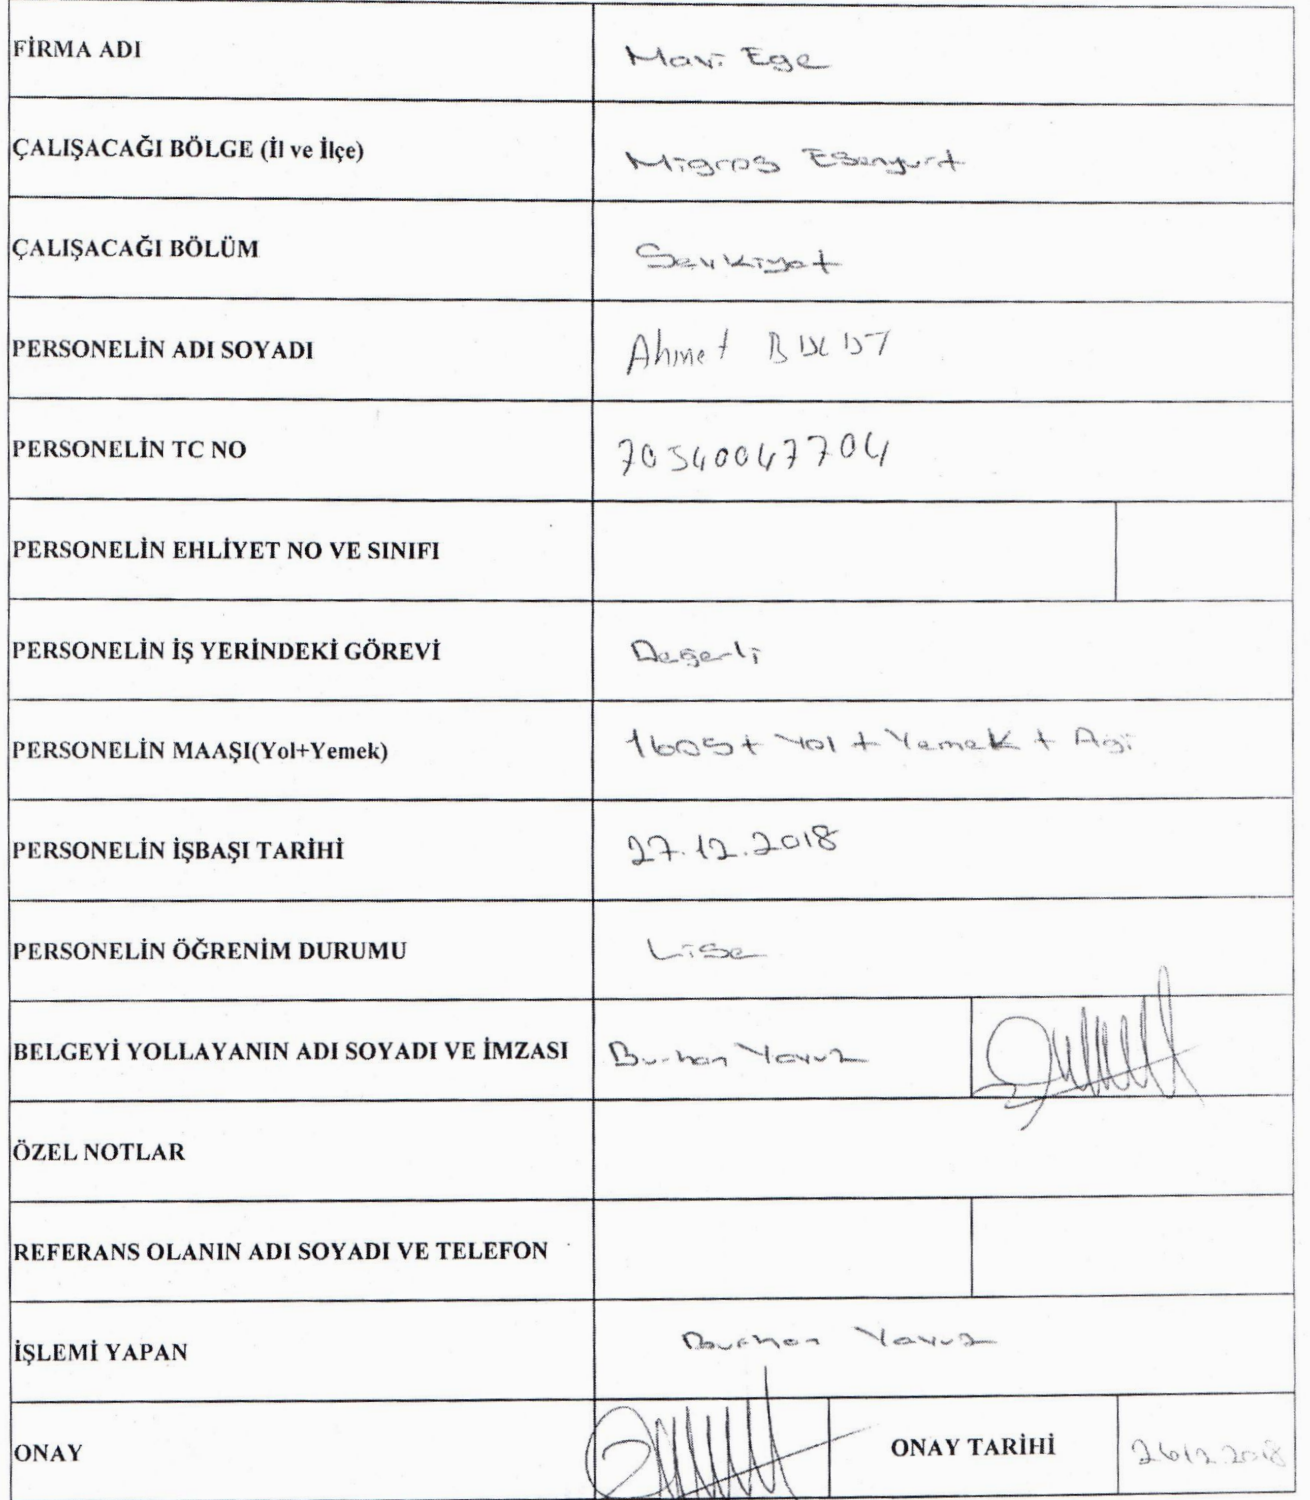 FİRMA ADI Mavi Ege
ÇALIŞACAĞI BÖLGE (İl ve İlçe) Migros Esenyurt
ÇALIŞACAĞI BÖLÜM Sevkiyat
PERSONELİN ADI SOYADI Ahmet
PERSONELİN TC NO 70540047704
PERSONELİN EHLİYET NO VE SINIFI
PERSONELİN İŞ YERİNDEKİ GÖREVİ Değerli
PERSONELİN MAAŞI(Yol+Yemek) 1605+ Yol + Yemek + Agi
PERSONELİN İŞBAŞI TARİHİ 27.12.2018
PERSONELİN ÖĞRENİM DURUMU Lise
BELGEYİ YOLLAYANIN ADI SOYADI VE İMZASI Burhan Yavuz
ÖZEL NOTLAR
REFERANS OLANIN ADI SOYADI VE TELEFON
İŞLEMİ YAPAN Burhan Yavuz
ONAY ONAY TARİHİ 26.12.2018